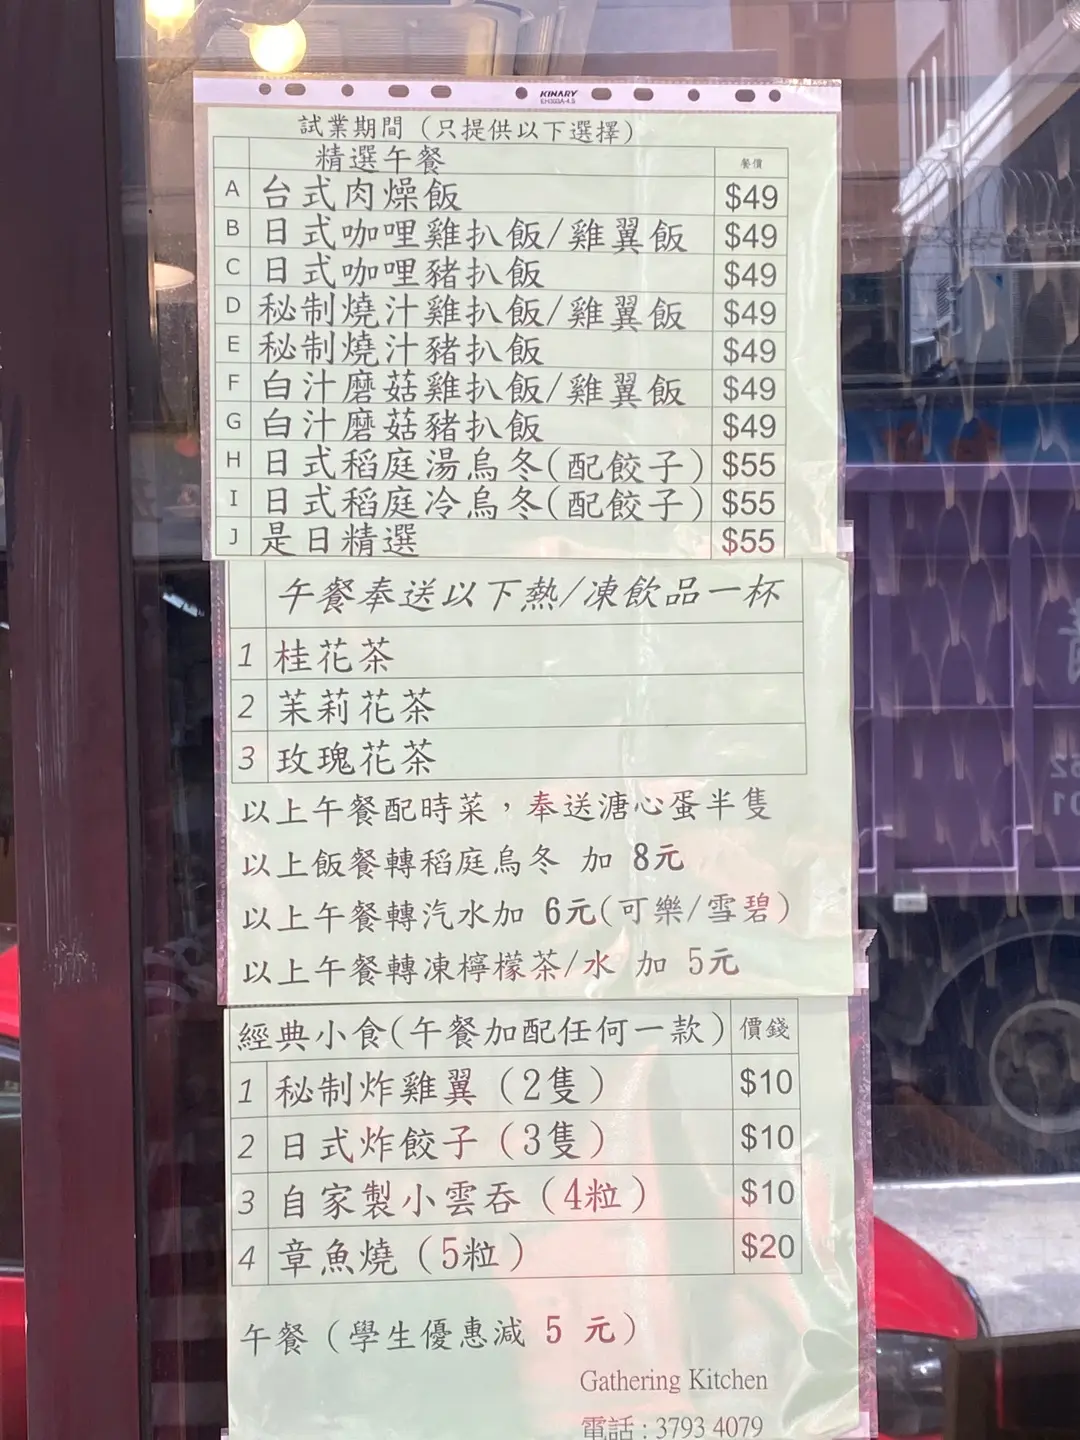 KINARY
EH303A-4.5
試業期間（只提供以下選擇）
精選午餐 餐價
A 台式肉燥飯 $49
B 日式咖哩雞扒飯/雞翼飯 $49
C 日式咖哩豬扒飯 $49
D 秘制燒汁雞扒飯/雞翼飯 $49
E 秘制燒汁豬扒飯 $49
F 白汁磨菇雞扒飯/雞翼飯 $49
G 白汁磨菇豬扒飯 $49
H 日式稻庭湯烏冬(配餃子) $55
I 日式稻庭冷烏冬(配餃子) $55
J 是日精選 $55
午餐奉送以下熱/凍飲品一杯
1 桂花茶
2 茉莉花茶
3 玫瑰花茶
以上午餐配時菜，奉送溏心蛋半隻
以上飯餐轉稻庭烏冬 加 8元
以上午餐轉汽水加 6元(可樂/雪碧)
以上午餐轉凍檸檬茶/水 加 5元
經典小食(午餐加配任何一款) 價錢
1 秘制炸雞翼（2隻） $10
2 日式炸餃子（3隻） $10
3 自家製小雲吞（4粒） $10
4 章魚燒（5粒） $20
午餐（學生優惠減 5 元）
Gathering Kitchen
電話 : 3793 4079